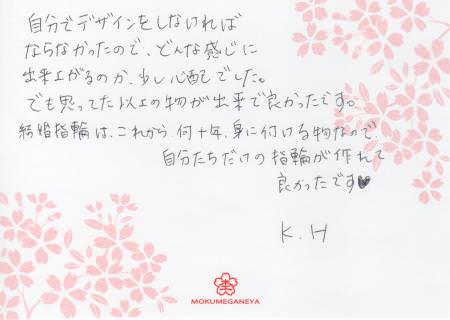 自分でデザインをしなければ
ならなかったので、どんな感じに
出来上がるのか、少し心配でした。
でも思ってた以上の物が出来て良かったです。
結婚指輪は、これから、何十年、身に付ける物なので、
自分たちだけの指輪が作れて
良かったです♥
K.H
MOKUMEGANEYA